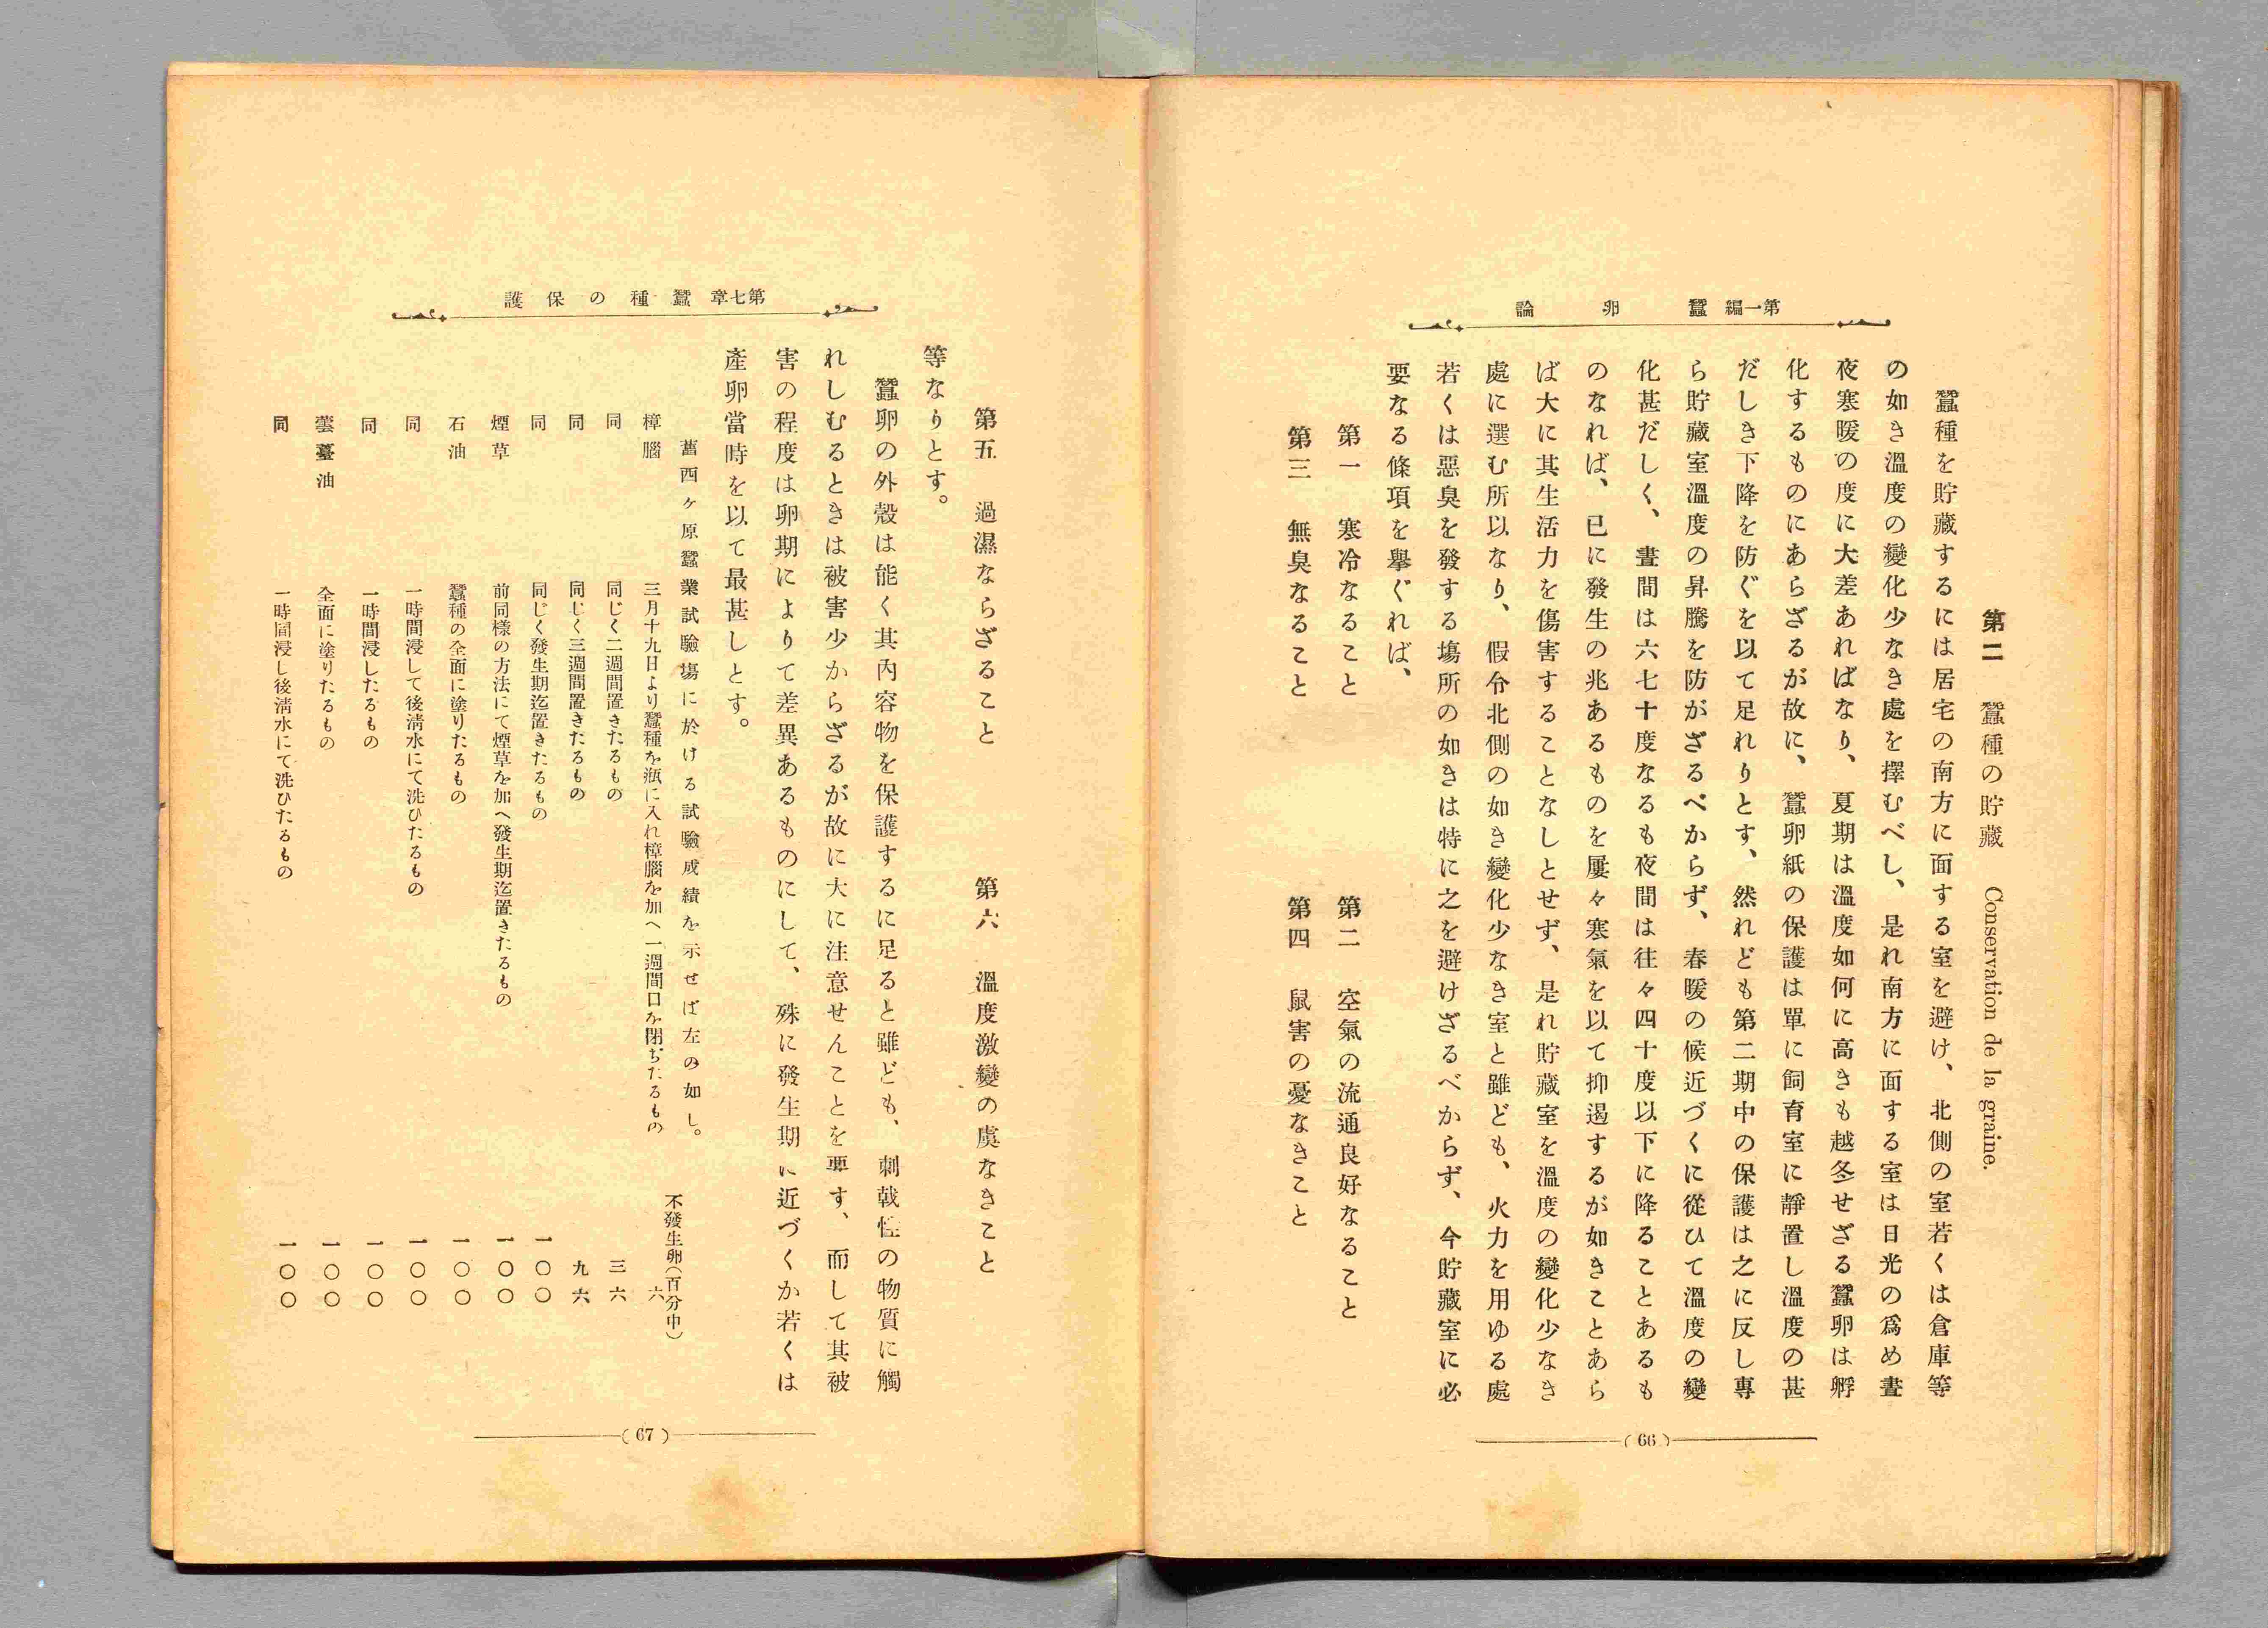 第一編 蠶卵論
第二 蠶種の貯藏 Conservation de la graine.
蠶種を貯藏するには居宅の南方に面する室を避け、北側の室若くは倉庫等
の如き溫度の變化少なき處を擇むべし、是れ南方に面する室は日光の爲め晝
夜寒暖の度に大差あればなり、夏期は溫度如何に高きも越冬せざる蠶卵は孵
化するものにあらざるが故に、蠶卵紙の保護は單に飼育室に靜置し溫度の甚
だしき下降を防ぐを以て足れりとす、然れども第二期中の保護は之に反し專
ら貯藏室溫度の昇騰を防がざるべからず、春暖の候近づくに從ひて溫度の變
化甚だしく、晝間は六七十度なるも夜間は往々四十度以下に降ることあるも
のなれば、已に發生の兆あるものを屢々寒氣を以て抑遏するが如きことあら
ば大に其生活力を傷害することなしとせず、是れ貯藏室を溫度の變化少なき
處に選む所以なり、假令北側の如き變化少なき室と雖ども、火力を用ゆる處
若くは惡臭を發する塲所の如きは特に之を避けざるべからず、今貯藏室に必
要なる條項を擧ぐれば、
第一 寒冷なること 第二 空氣の流通良好なること
第三 無臭なること 第四 鼠害の憂なきこと
(66)
第七章 蠶種の保護
第五 過濕ならざること 第六 溫度激變の虞なきこと
等なりとす。
蠶卵の外殼は能く其內容物を保護するに足ると雖ども、刺戟性の物質に觸
れしむるときは被害少からざるが故に大に注意せんことを要す、而して其被
害の程度は卵期によりて差異あるものにして、殊に發生期に近づくか若くは
產卵當時を以て最甚しとす。
舊西ヶ原蠶業試驗塲に於ける試驗成績を示せば左の如し。
不發生卵(百分中)
樟腦 三月十九日より蠶種を瓶に入れ樟腦を加へ一週間口を閉ぢたるもの 六
同 同じく二週間置きたるもの 三六
同 同じく三週間置きたるもの 九六
同 同じく發生期迄置きたるもの 一〇〇
煙草 前同樣の方法にて煙草を加へ發生期迄置きたるもの 一〇〇
石油 蠶種の全面に塗りたるもの 一〇〇
同 一時間浸して後淸水にて洗ひたるもの 一〇〇
同 一時間浸したるもの 一〇〇
蕓薹油 全面に塗りたるもの 一〇〇
同 一時間浸し後淸水にて洗ひたるもの 一〇〇
(67)